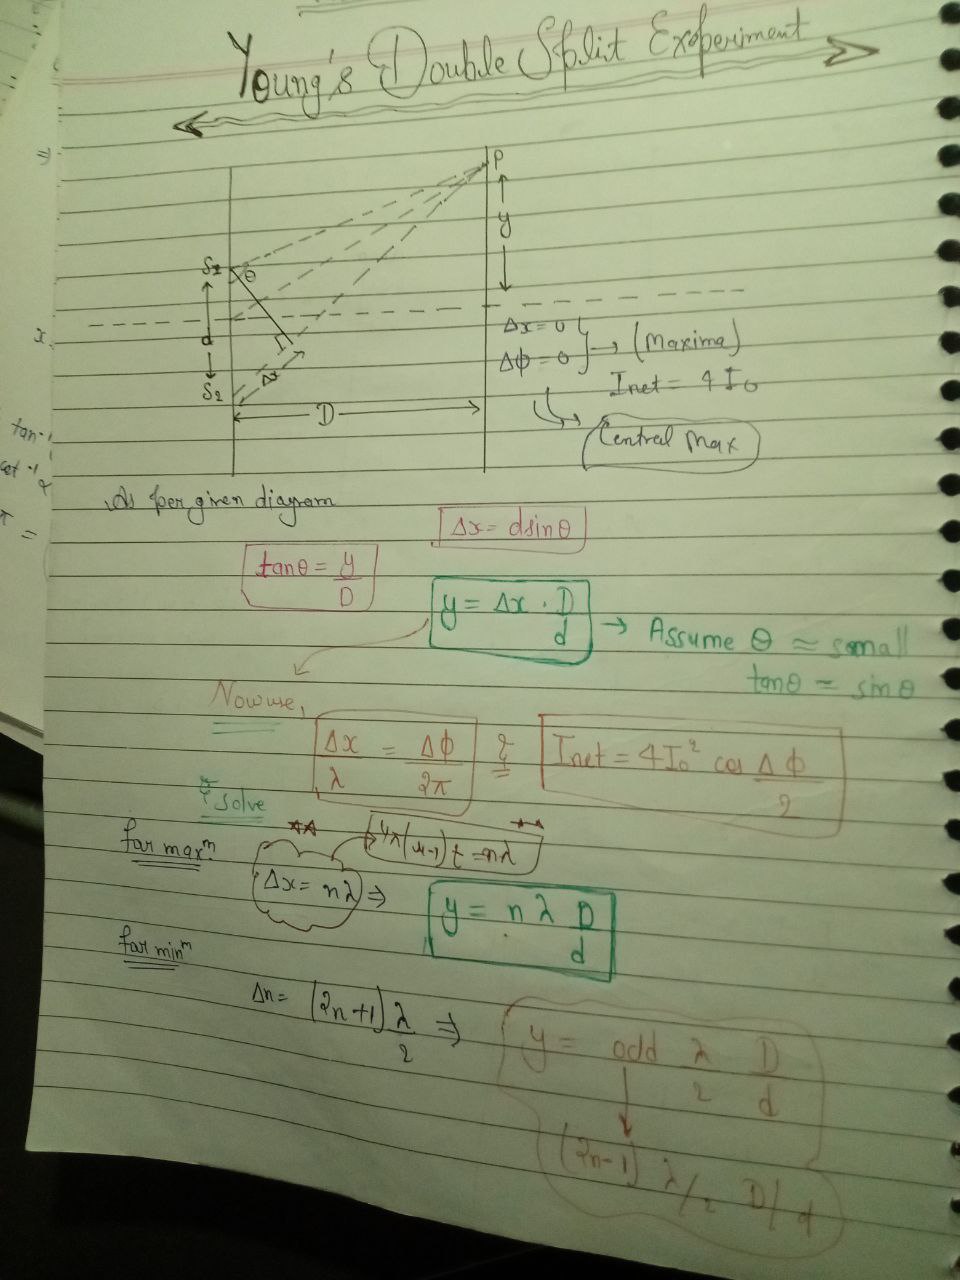 Young's Double Split Experiment
P
y
S1
θ
d
S2
Δx
D
Δx = 0
Δφ = 0 } → (Maxima)
Inet = 4 I0
Central Max
As per given diagram
Δx = dsinθ
tanθ = y/D
y = Δx · D/d → Assume θ ≈ small
tanθ ≈ sinθ
Now use,
Δx/λ = Δφ/2π & Inet = 4I0² cos Δφ/2
& solve
for maxm
(μ-1)t = nλ
Δx = nλ ⇒ y = nλ D/d
for minm
Δn = (2n+1) λ/2 ⇒ y = odd λ/2 D/d
(2n-1) λ/2 D/d
x
tan-1
π =